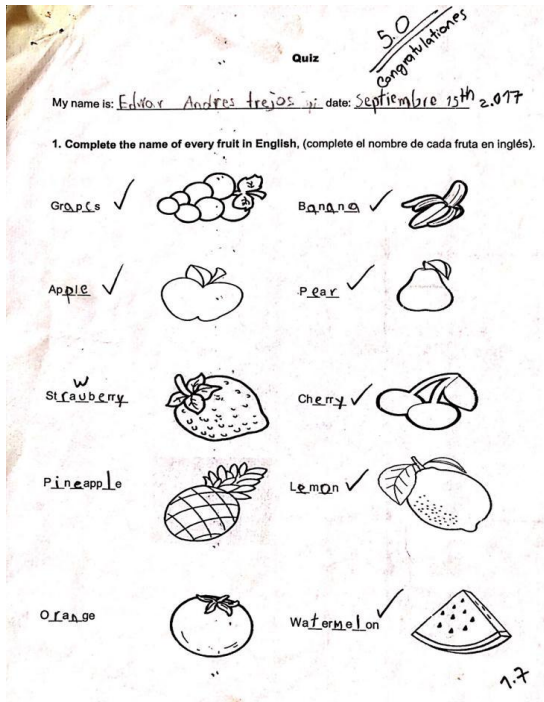 5.0
Congratulationes
Quiz
My name is: Edwar Andres trejos date: Septiembre 15th 2.017
1. Complete the name of every fruit in English, (complete el nombre de cada fruta en inglés).
Grapes ✓ Banana ✓
Apple ✓ Pear ✓
w
Strauberry Cherry ✓
Pineapple Lemon ✓
Orange Watermelon ✓
1.7